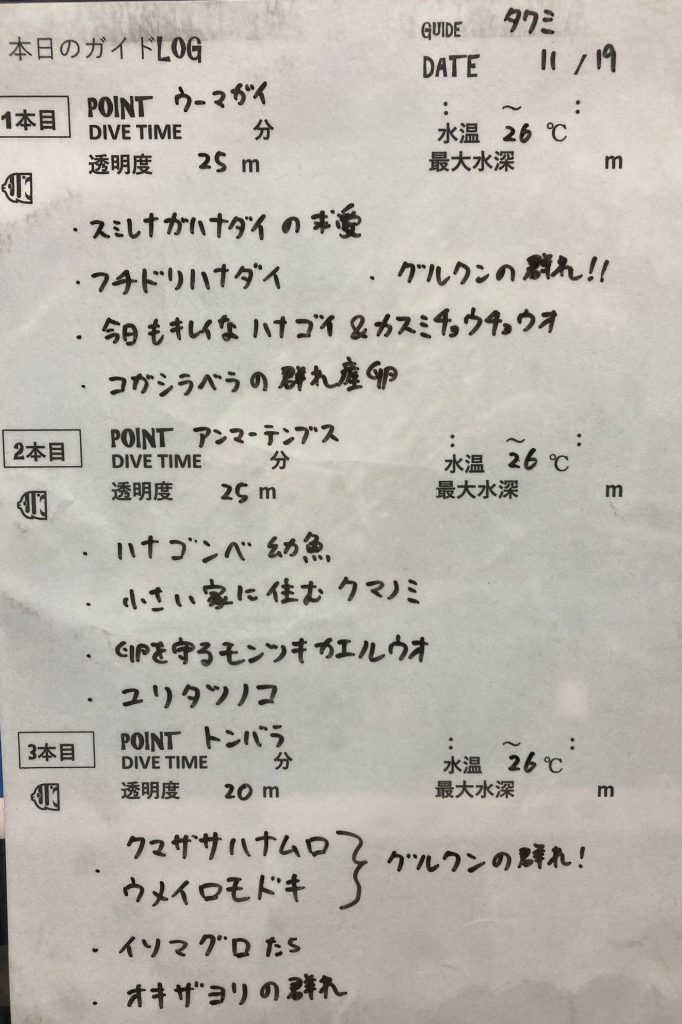 本日のガイドLOG
GUIDE タクミ
DATE 11 / 19
1本目
POINT ウーマガイ
: ～ :
DIVE TIME 分
水温 26 ℃
透明度 25 m
最大水深 m
・スミレナガハナダイの求愛
・フチドリハナダイ ・グルクンの群れ!!
・今日もキレイなハナゴイ&カスミチョウチョウオ
・コガシラベラの群れ産卵
2本目
POINT アンマーテンブス
: ～ :
DIVE TIME 分
水温 26 ℃
透明度 25 m
最大水深 m
・ハナゴンベ 幼魚
・小さい家に住むクマノミ
・卵を守るモンツキカエルウオ
・ユリタツノコ
3本目
POINT トンバラ
: ～ :
DIVE TIME 分
水温 26 ℃
透明度 20 m
最大水深 m
・クマザサハナムロ
ウメイロモドキ
グルクンの群れ!
・イソマグロたち
・オキザヨリの群れ